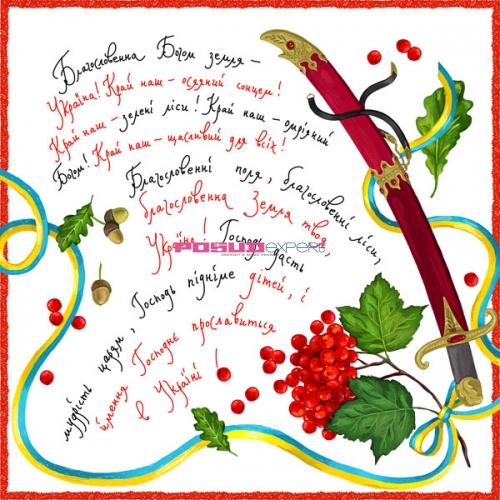 Благословенна Богом земля –
Україна! Край наш – осяяний сонцем!
Край наш – зелені ліси! Край наш – омріяний
Богом! Край наш – щасливий для всіх!
Благословенні поля, благословенні ліси,
благословенна Земля твоя,
Україно! Господь дасть
POSUDexpert
мудрість царям, Господь підніме дітей, і
імення Господнє прославиться
в Україні!